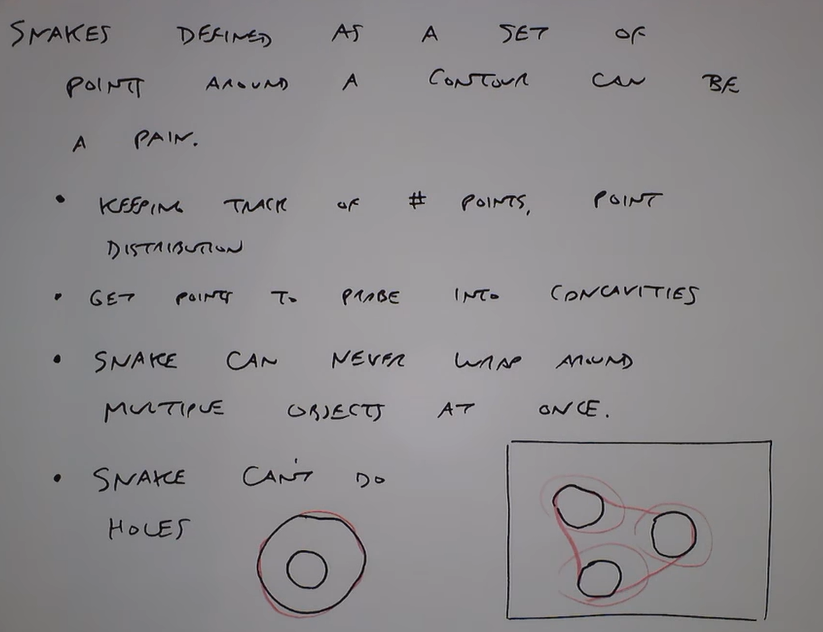 SNAKES DEFINED AS A SET OF
POINTS AROUND A CONTOUR CAN BE
A PAIN.
• KEEPING TRACK OF # POINTS, POINT
DISTRIBUTION
• GET POINTS TO PROBE INTO CONCAVITIES
• SNAKE CAN NEVER WRAP AROUND
MULTIPLE OBJECTS AT ONCE.
• SNAKE CAN'T DO
HOLES